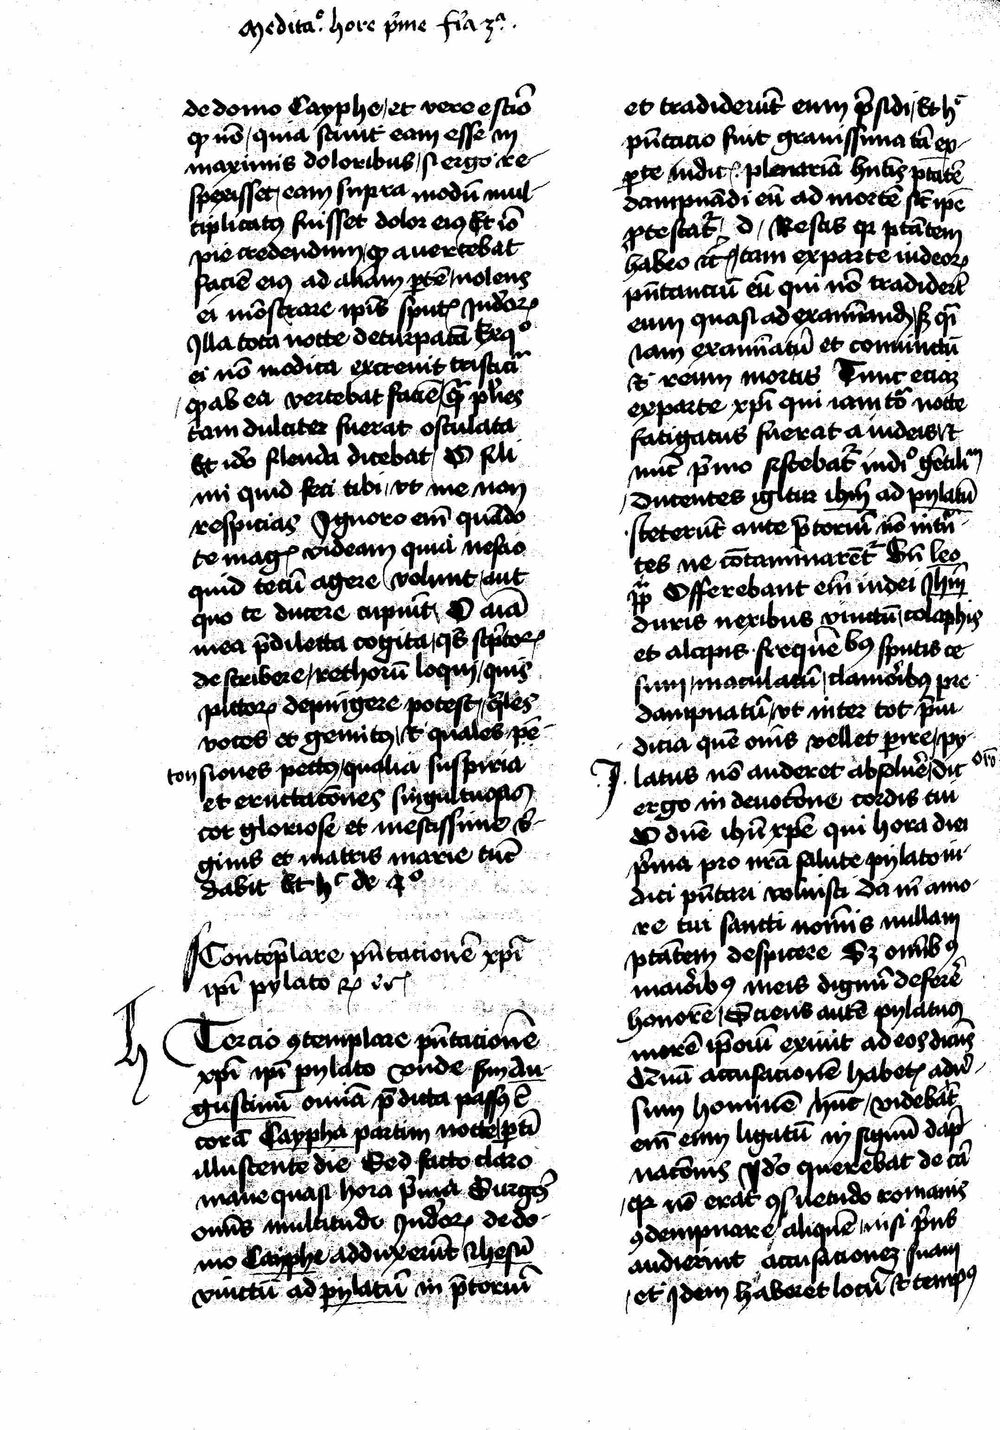 Medita.º hore p̄me fīa 3ª.
de domo Cayphe / et vere estīo
qꝫ nō / quia sciuit eam esse in
maximis doloribus / si ergo re-
spexisset / eam supra modū mul-
tiplicatꝰ fuisset dolor eiꝰ Et iō
pie credendum / qꝫ auertebat
faciē eiꝰ ad aliam p̄tē / nolens
ei mōstrare ipīs sputꝭ Judeorꝫ
Illa tota nocte deturpatā Ex qº
ei nō modica excreuit tristicia
/ qꝫ ab ea vertebat faciē / quā pl̄ies
tam dulciter fuerat osculata
Et idō silenda dicebat / O fili
mi quid feci tibi / vt me non
respicias Ignoro em̄ quādo
te magꝭ videam quia nescio
quid tecū agere / volunt / aut
quo te ducere cupiūt / O aīa
mea p̄dilecta cogita / qͥs scp̄torꝫ
describere / rethorū loqui / quis
pictorꝫ depingere potest / q̄les
voces et gemitꝰ / et quales pē-
ton siones pectoꝰ / qualia suspiria
et eructacōnes singultuosas
tot gloriose et mestissime v̄-
ginis et matris marie tūc
dabit Et hͨ de 4º
Contēplare pn̄tacionē xpī
ipī pylato
h
Tercio ꝯtemplare pn̄tacionē
xpī ipī pylato vnde scdm Au-
gustinū omīa p̄dicta passꝰ ē
corā Caypha partim nocte / p̄tī
illuscente die Sed facto claro
mane quasi hora p̄ma Surgēs
omīs multitudo Judeorꝫ de do-
mo Cayphe adduxerūt Jhesū
vinctū ad pylatū in p̄toriū
et tradiderūt eum p̄sidi / Et hͨ
pn̄tacio fuit grauissima tā ex-
p̄te iudicꝭ plenariā hn̄tis ptātē
dampnādi eū ad mortē sic̄ ipē
ꝓtestat᷑ d / Nescis qꝛ ptātem
habeo et̄c / tam exparte iudeorꝫ
pn̄tanciū eū qui nō tradiderūt
eum quasi ad examīandꝫ / sꝫ q̄i
iam examīatū et conuictū
et reum mortis Tunc eciaꝫ
exparte xpī qui iam tō nocte
fatigatus fuerat a iudeis / et
nūc p̄mo sistebat᷑ iudiº gētiliᷤ
/ Ducentes igitur ihm̄ ad pylatū
steterūt ante p̄toriū nō intrā
tes ne cōtaminarēt᷑ Vn̄ leo
pp Offerebant em̄ iudei Jhm̄
duris nexibus vinctū / colaphis
et alapis frequē bꝰ sputis ce
sum / maculatū / clamōribꝰ pre
dampnatū / vt inter tot p̄iu
dicia quē om̄s vellet p̄ire / py-
J. latus nō auderet absoluē / dic Orō
ergo in deuocōne cordis tui
O dn̄e ihū xpē qui hora diei
p̄ma pro nr̄a salute pylato iu-
dici pn̄tari voluisti Da m̄ amo-
re tui sancti nomīs nullam
ptātem despicere Sꝫ om̄ibꝰ
maioribꝰ meis dignū deferē
honorē / Sciens autē pylatus
morē ip̄orū exiuit ad eos dicēs
Quā accusacionē habetꝭ adu᷑-
sum hominē hūc / videbat
em̄ eum ligatū in signū dāp
nacōnis Ideo querebat de cā
/ qꝛ nō erat ꝯsuetudo romanis
ꝯdempnare aliquē / nisi p̄us
audierint accusacioneꝫ suam
/ et idem haberet locū et tempꝰ